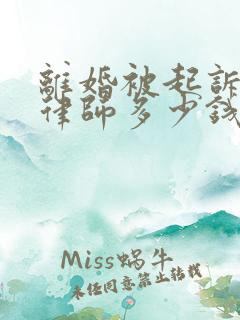 離婚被起訴
律師多少錢
Miss蜗牛
未经同意禁止转载